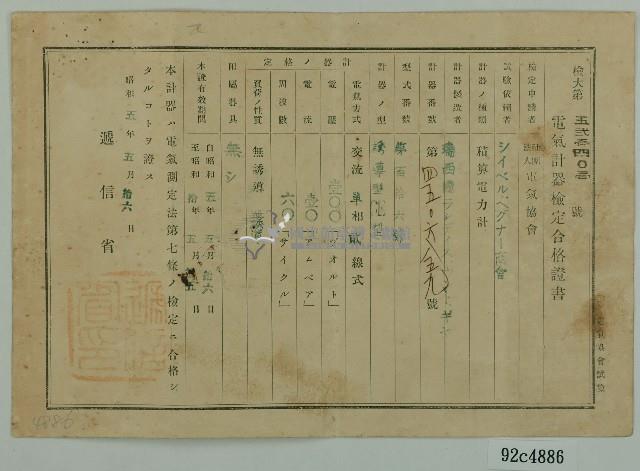 檢大第 五弐壱四〇壱 號
電氣計器檢定合格證書
檢定申請者 社團法人 電氣協會
試驗依賴者 シイベル、ヘグナー商會
計器ノ種類 積算電力計
計器製造者 瑞西國ランヂス
計器番號 第 四五〇六八五九 號
型式番號 第百拾六號
計器ノ型 誘導型
計器ノ格定
電氣方式 交流 單相貳線式
電壓 壹〇〇「ヴオルト」
電流 壹〇「アムペア」
周波數 六〇「サイクル」
負荷ノ性質 無誘導
附屬器具 無シ
本證有效期間 自昭和 五年 五月 拾六日
至昭和 拾年 五月 五日
本計器ハ電氣測定法第七條ノ檢定ニ合格シ
タルコトヲ證ス
昭和 五年 五月 拾六日
遞信省
4886
92c4886